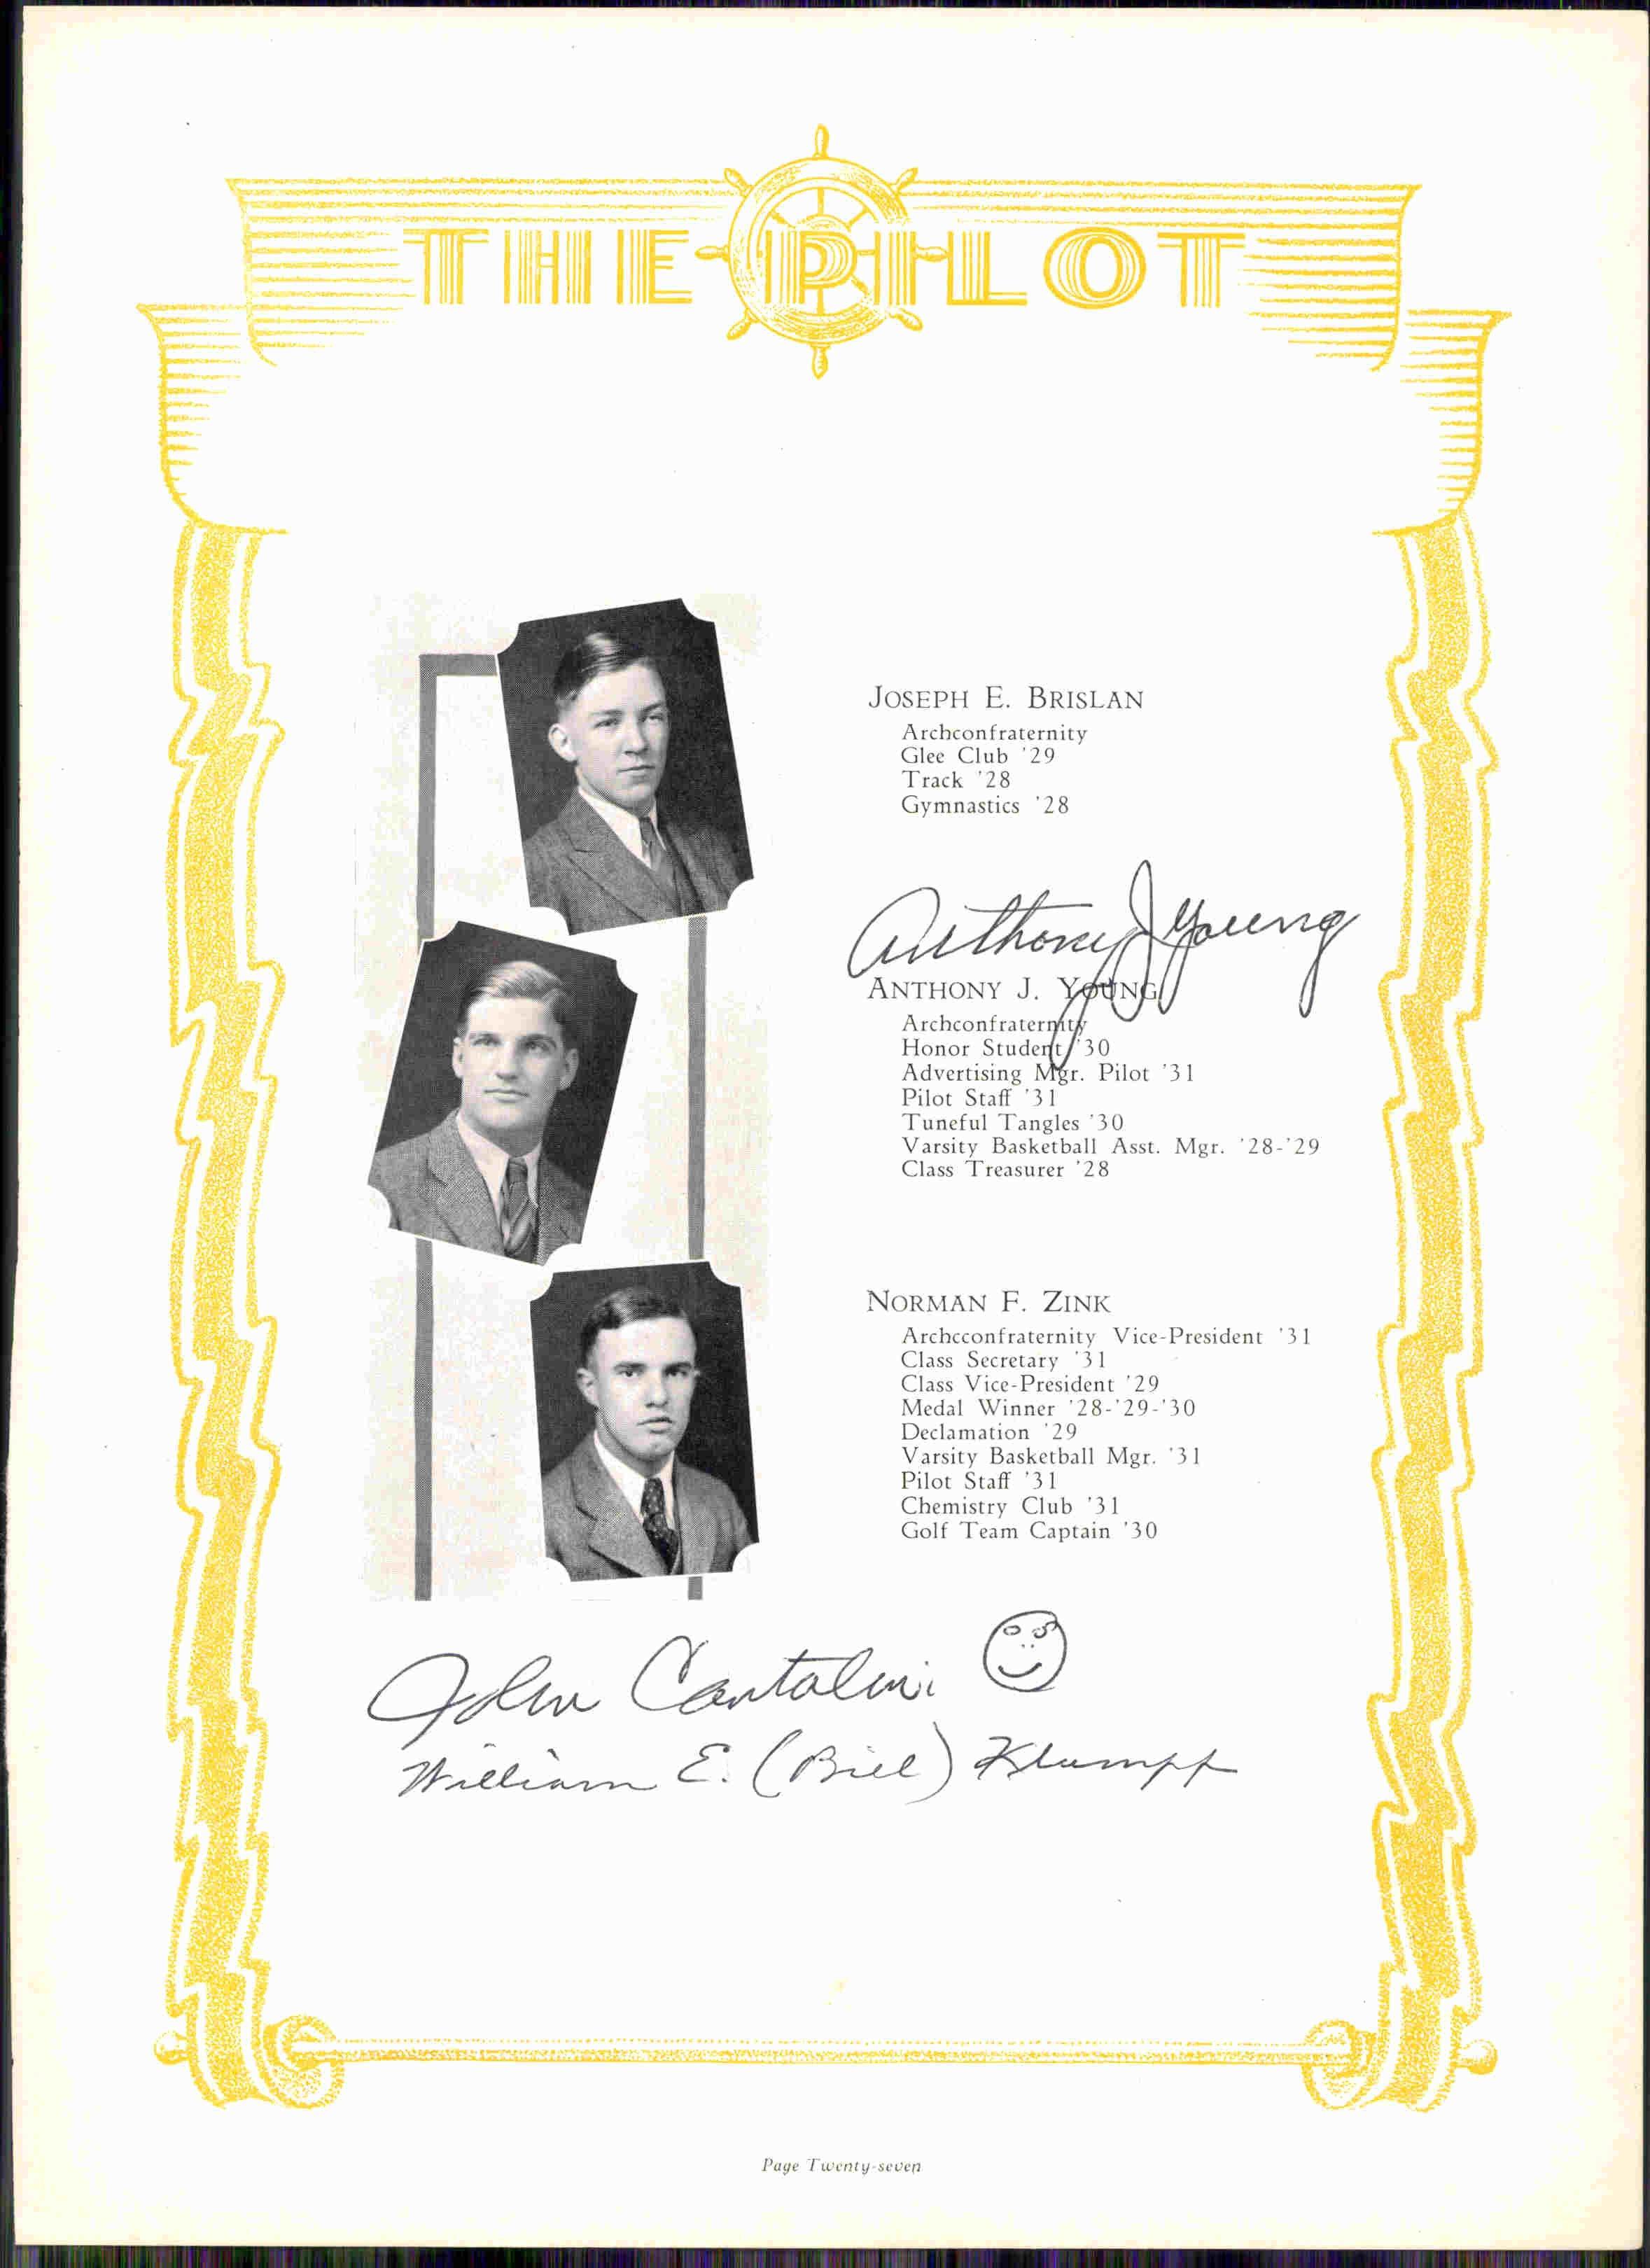 THE PILOT
JOSEPH E. BRISLAN
Archconfraternity
Glee Club '29
Track '28
Gymnastics '28
Anthony J Young
ANTHONY J. YOUNG
Archconfraternity
Honor Student '30
Advertising Mgr. Pilot '31
Pilot Staff '31
Tuneful Tangles '30
Varsity Basketball Asst. Mgr. '28-'29
Class Treasurer '28
NORMAN F. ZINK
Archcconfraternity Vice-President '31
Class Secretary '31
Class Vice-President '29
Medal Winner '28-'29-'30
Declamation '29
Varsity Basketball Mgr. '31
Pilot Staff '31
Chemistry Club '31
Golf Team Captain '30
John Cantalini
William E. (Bill) Klumpp
Page Twenty-seven